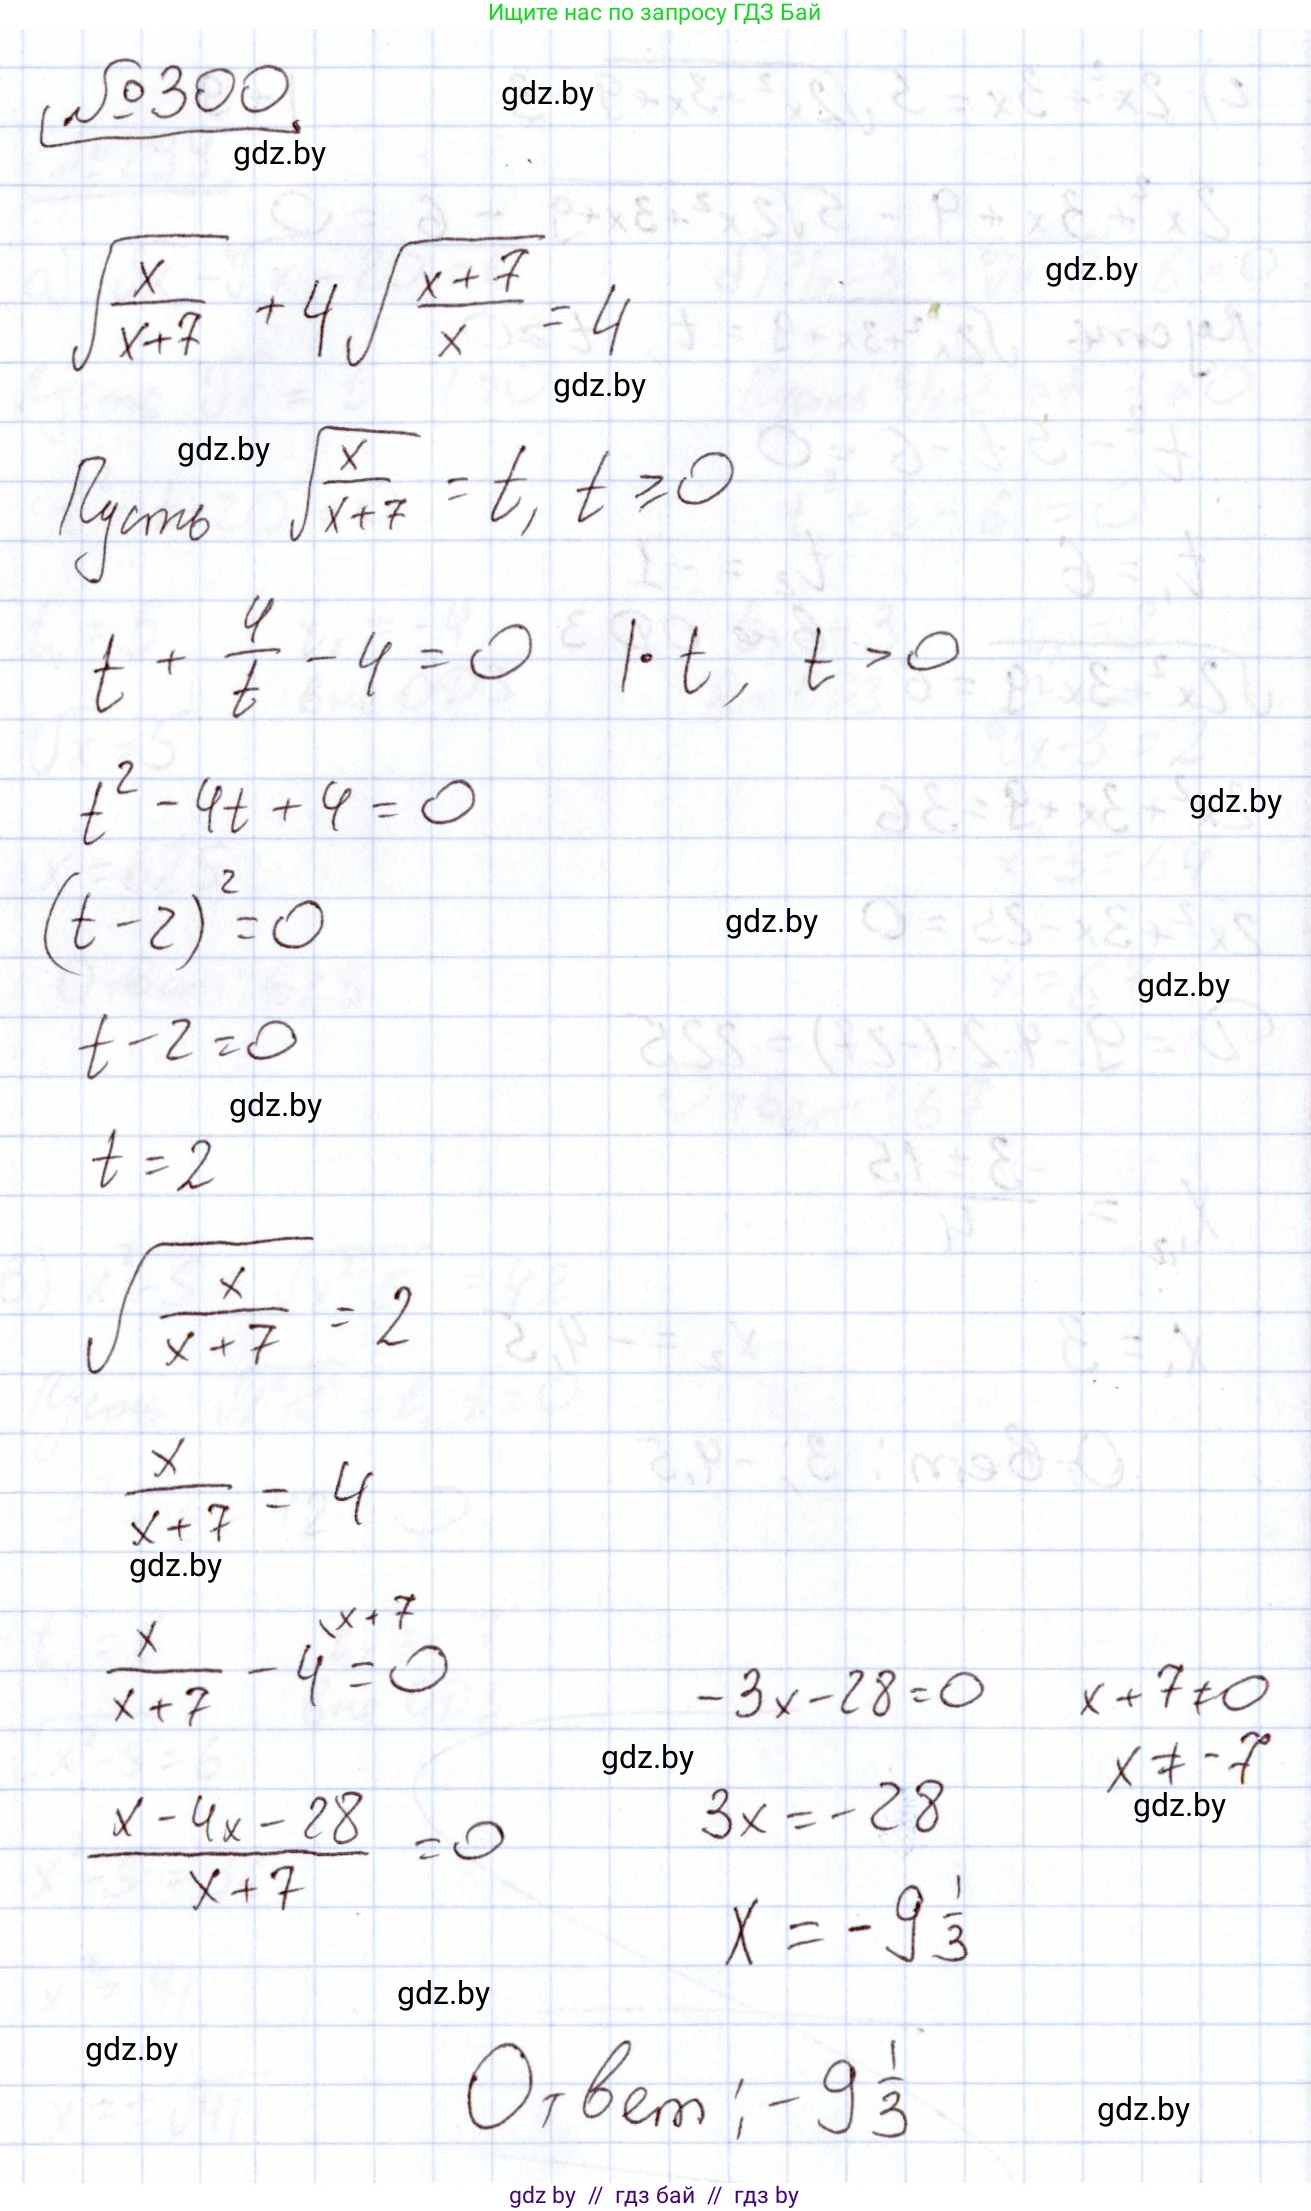 Ищите нас по запросу ГДЗ Бай
№300
gdz.by
gdz.by
√(x/(x+7)) + 4√((x+7)/x) = 4
gdz.by
gdz.by
gdz.by
Пусть √(x/(x+7)) = t, t ⩾ 0
t + 4/t - 4 = 0 |· t, t > 0
t² - 4t + 4 = 0
gdz.by
(t - 2)² = 0
gdz.by
gdz.by
t - 2 = 0
gdz.by
t = 2
√(x/(x+7)) = 2
x/(x+7) = 4
gdz.by
x/(x+7) - 4\x+7 = 0
(x - 4x - 28)/(x+7) = 0
-3x - 28 = 0
x + 7 ≠ 0
gdz.by
x ≠ -7
gdz.by
3x = -28
x = -9 1/3
gdz.by
gdz.by
Ответ: -9 1/3
gdz.by
gdz by // гдз бай // гдз by